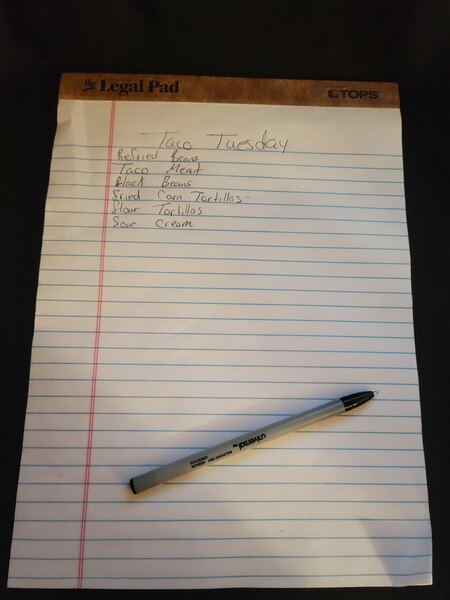 the Legal Pad
TOPS
Taco Tuesday
Refried Beans
Taco Meat
Black Beans
Fried Corn Tortillas
flour Tortillas
Sour Cream
universal